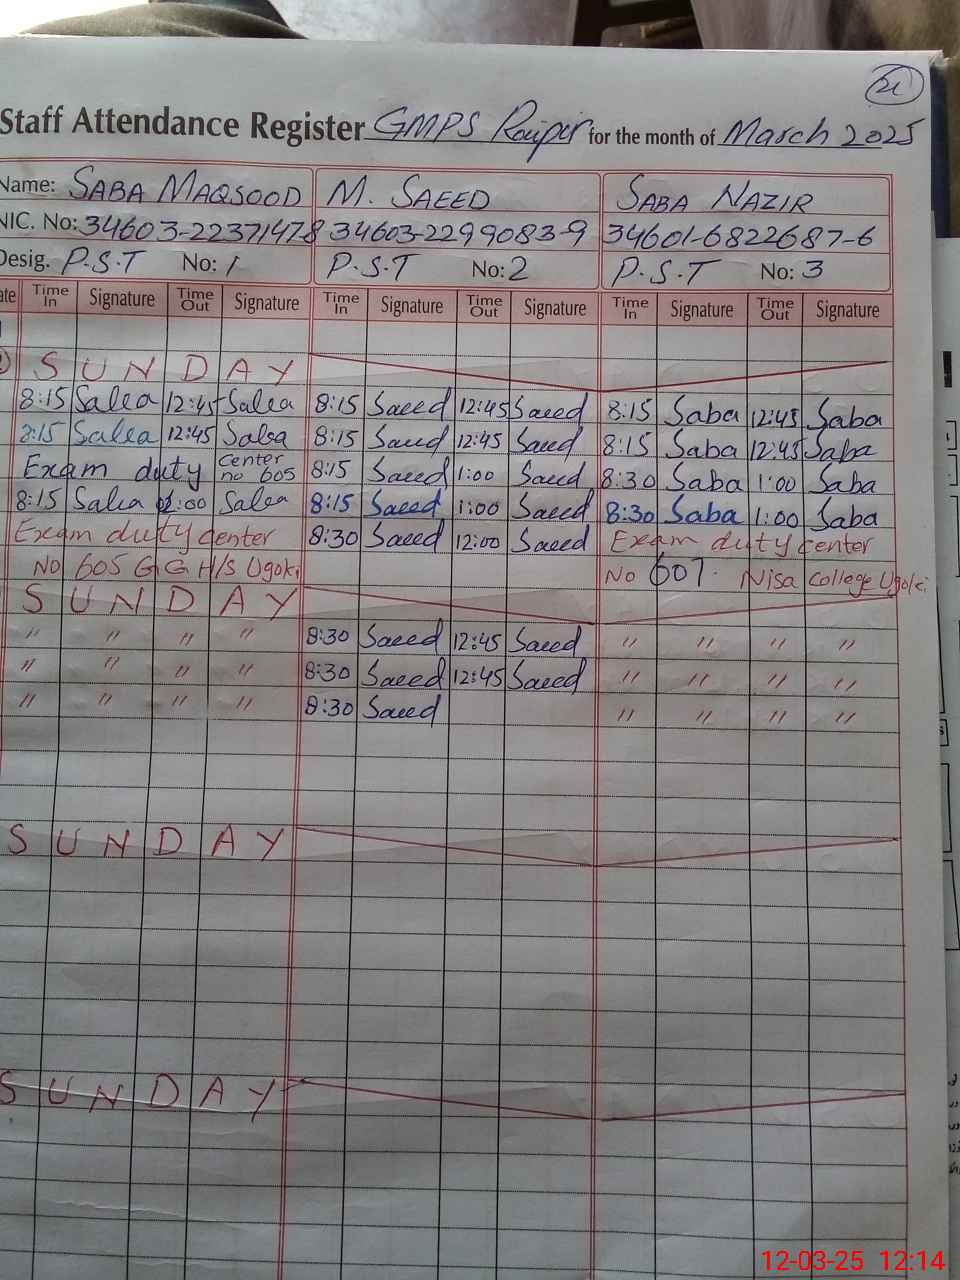 21
Staff Attendance Register GMPS Raipur for the month of March 2025
Name: SABA MAQSOOD M. SAEED SABA NAZIR
NIC. No: 34603-2237147-8 34603-2299083-9 34601-6822687-6
Desig. P.S.T No: 1 P.S.T No: 2 P.S.T No: 3
ate Time In Signature Time Out Signature Time In Signature Time Out Signature Time In Signature Time Out Signature
S U N D A Y
8:15 Saba 12:45 Saba 8:15 Saeed 12:45 Saeed 8:15 Saba 12:45 Saba
8:15 Saba 12:45 Saba 8:15 Saeed 12:45 Saeed 8:15 Saba 12:45 Saba
Exam duty Center no 605 8:15 Saeed 1:00 Saeed 8:30 Saba 1:00 Saba
8:15 Saba 1:00 Saba 8:15 Saeed 1:00 Saeed 8:30 Saba 1:00 Saba
Exam duty Center 8:30 Saeed 12:00 Saeed Exam duty Center
No 605 G G H/S Ugoki No 607. Nisa College Ugoki
S U N D A Y
" " " " 8:30 Saeed 12:45 Saeed " " " "
" " " " 8:30 Saeed 12:45 Saeed " " " "
" " " " 8:30 Saeed " " " "
S U N D A Y
S U N D A Y
12-03-25 12:14